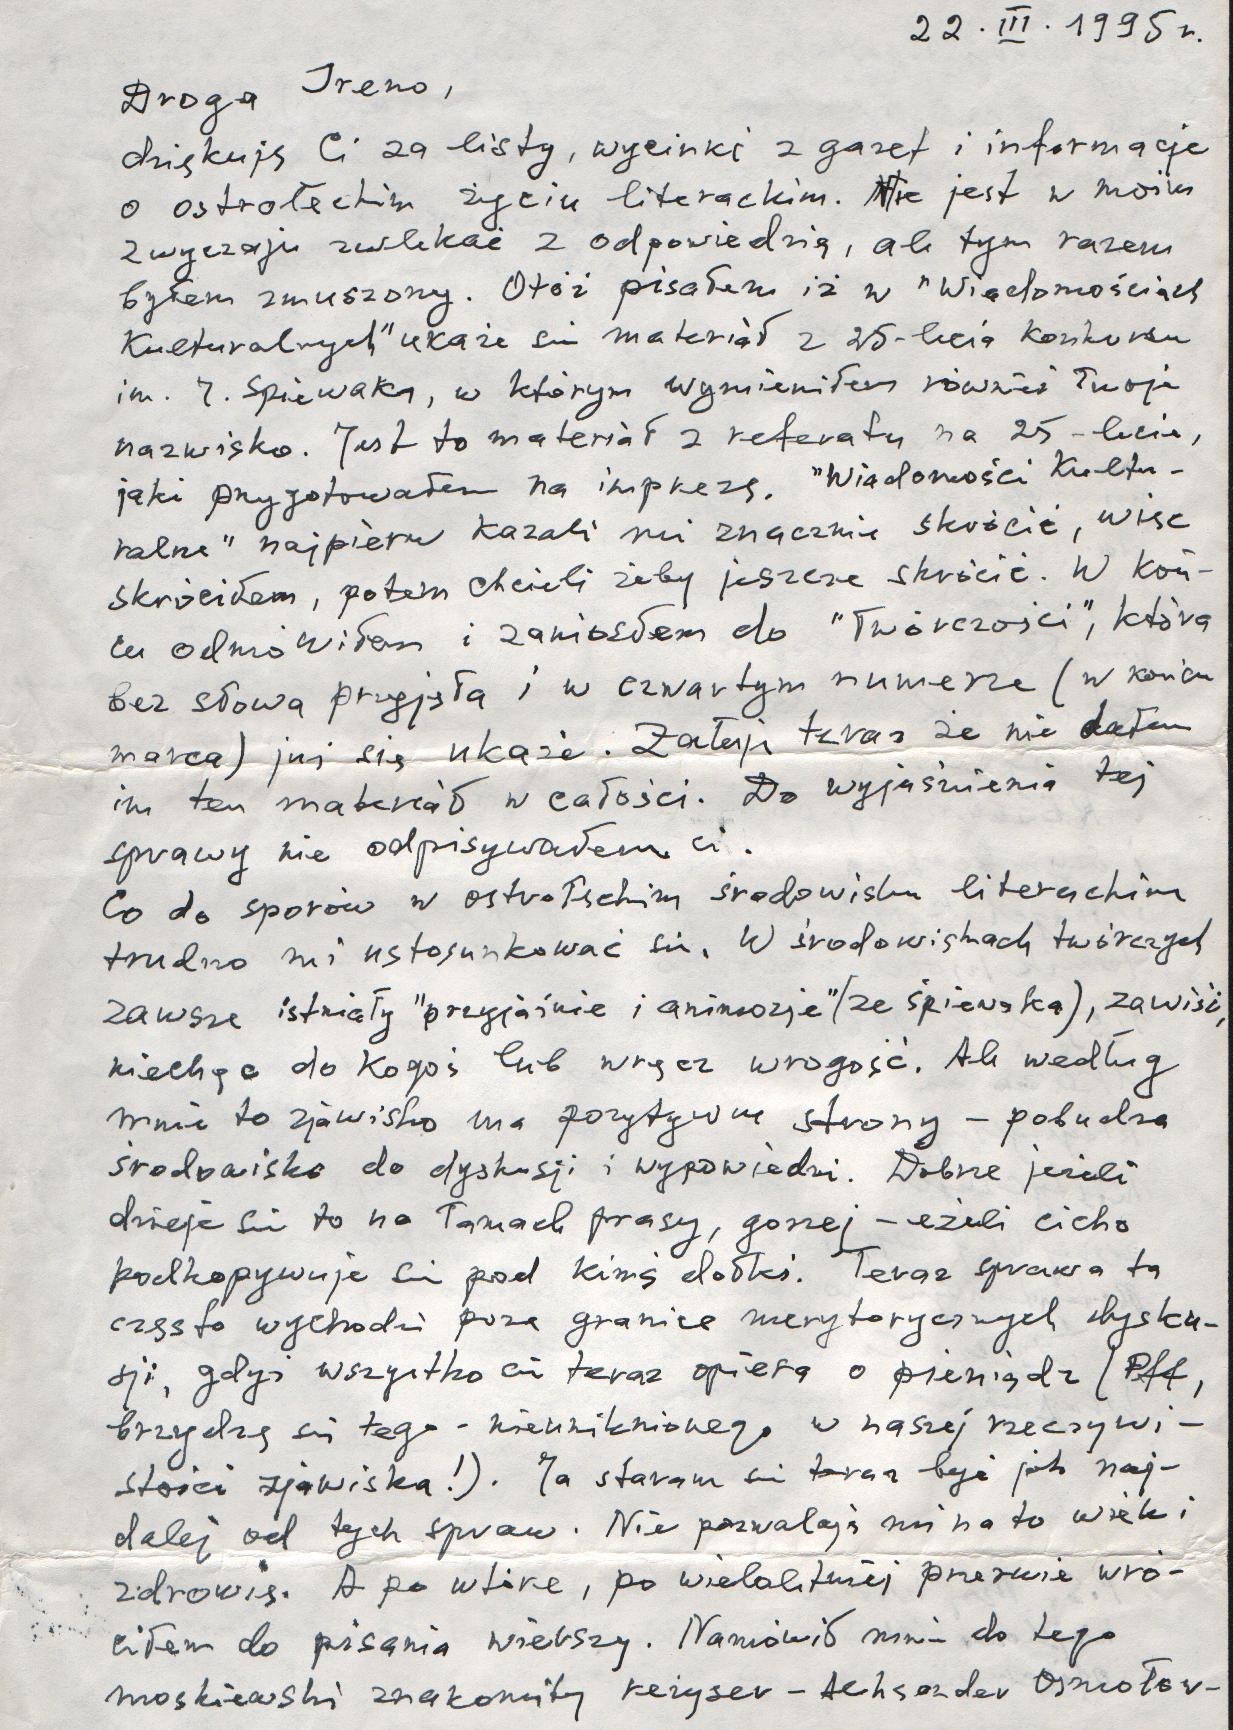 22.III.1995r.
Droga Ireno,
dziękuję Ci za listy, wycinki z gazet i informacje
o ostrołęckim życiu literackim. Nie jest w moim
zwyczaju zwlekać z odpowiedzią, ale tym razem
byłem zmuszony. Otóż pisałem iż w "Wiadomościach
Kulturalnych" ukaże się materiał z 25-lecia konkursu
im. J. Śpiewaka, w którym wymieniłem również Twoje
nazwisko. Jest to materiał z referatu na 25-lecie,
jaki przygotowałem na imprezę. "Wiadomości Kultu-
ralne" najpierw kazali mi znacznie skrócić, więc
skróciłem, potem chcieli żeby jeszcze skrócić. W koń-
cu odmówiłem i zaniosłem do "Twórczości", która
bez słowa przyjęła i w czwartym numerze (w końcu
marca) już się ukaże. Żałuję teraz że nie dałem
im ten materiał w całości. Do wyjaśnienia tej
sprawy nie odpisywałem ci.
Co do sporów w ostrołęckim środowisku literackim
trudno mi ustosunkować się. W środowiskach twórczych
zawsze istniały "przyjaźnie i animozje" (ze Śpiewaka), zawiść,
niechęć do kogoś lub wręcz wrogość. Ale według
mnie to zjawisko ma pozytywne strony – pobudza
środowisko do dyskusji i wypowiedzi. Dobrze jeżeli
dzieje się to na łamach prasy, gorzej – eżeli cicho
podkopywuje się pod kimś dołki. Teraz sprawa ta
często wychodzi poza granice merytorycznych dysku-
sji, gdyż wszystko ci teraz opiera o pieniądz (Pff,
brzydzę się tego - nieuniknionego w naszej rzeczywi-
stości zjawiska!). Ja staram się teraz być jak naj-
dalej od tych spraw. Nie pozwalają mi na to wiek i
zdrowie. A po wtóre, po wieloletniej przerwie wró-
ciłem do pisania wierszy. Namówił mnie do tego
moskiewski znakomity reżyser – Aleksander Osmołow-